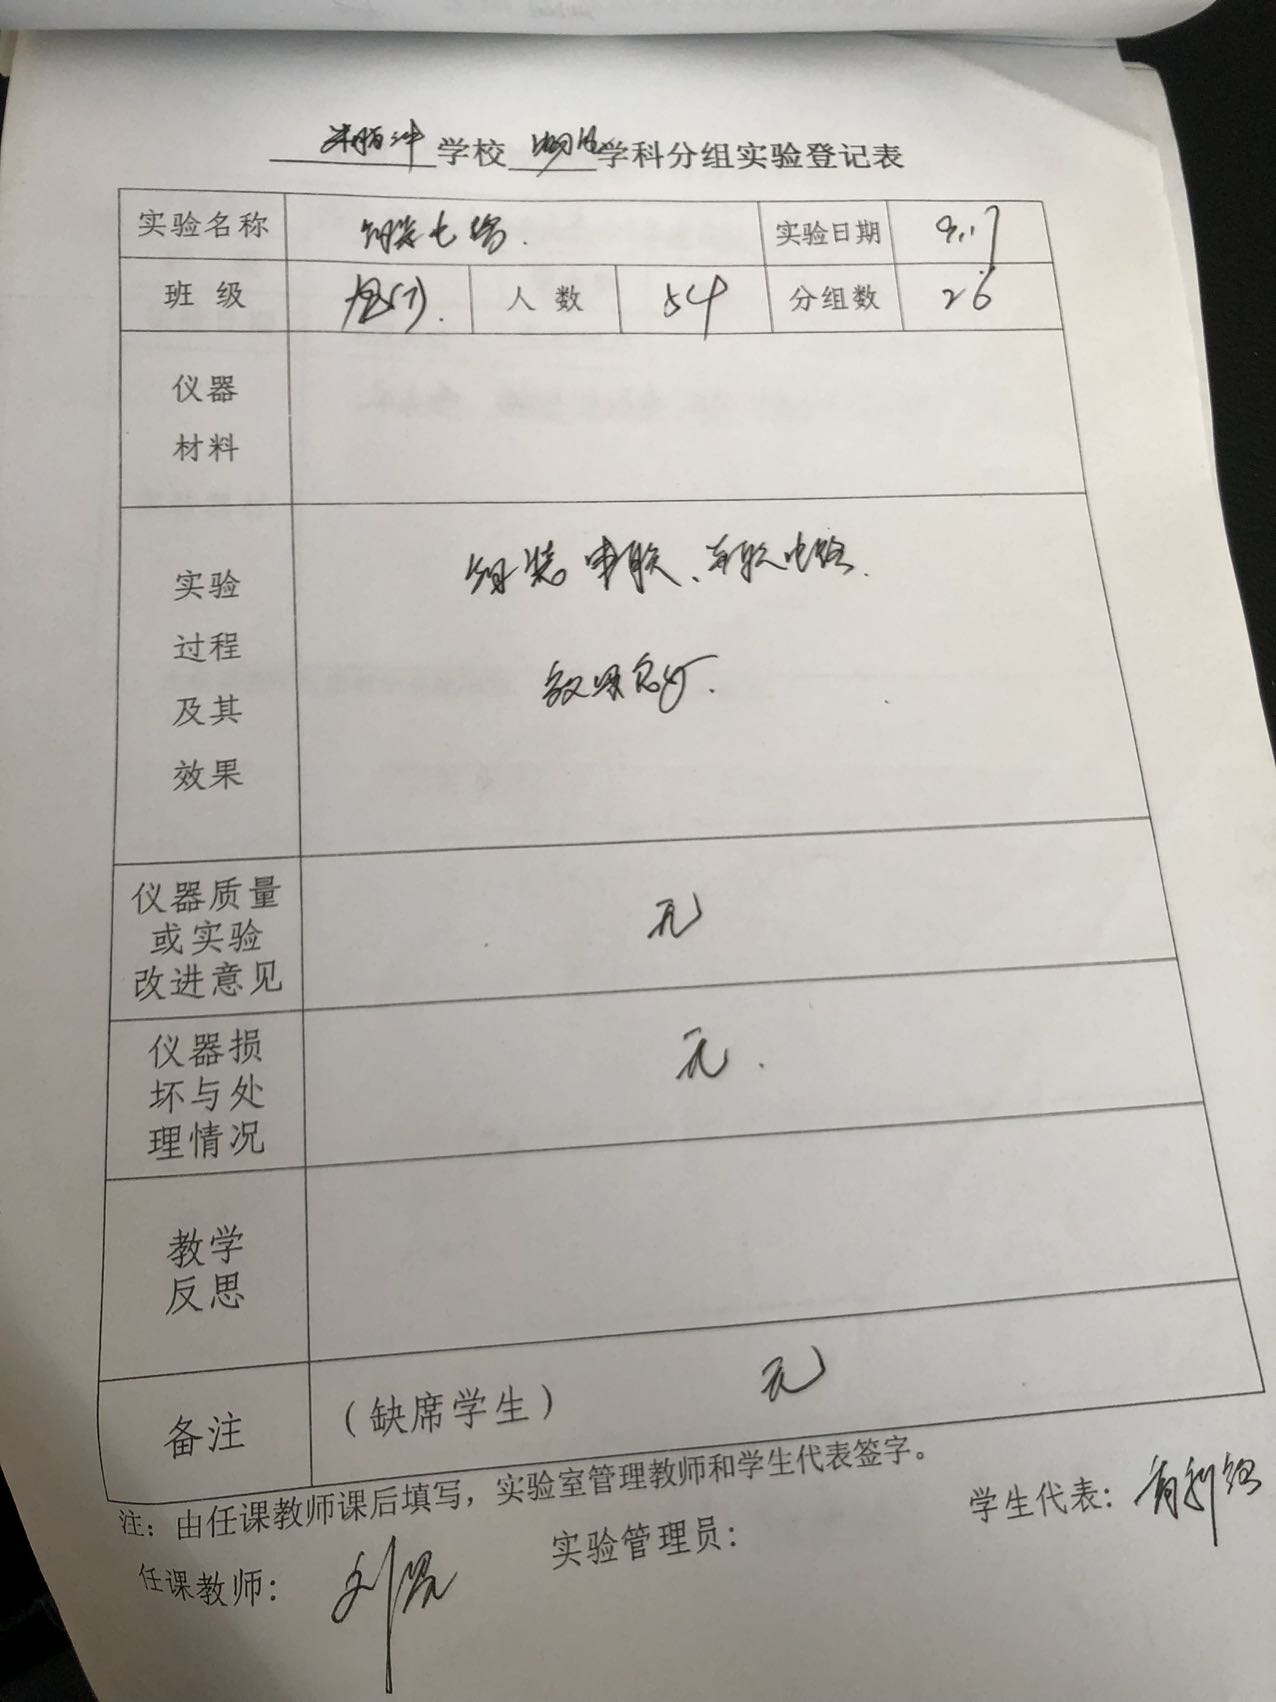 学校 物理 学科分组实验登记表
实验名称 组装电路. 实验日期 9.17
班级 九(7). 人数 54 分组数 26
仪器
材料
实验
过程
及其
效果
组装串联、并联电路.
效果良好.
仪器质量
或实验
改进意见
无
仪器损
坏与处
理情况
无.
教学
反思
备注 (缺席学生) 无
注：由任课教师课后填写，实验室管理教师和学生代表签字。
任课教师： 实验管理员： 学生代表：